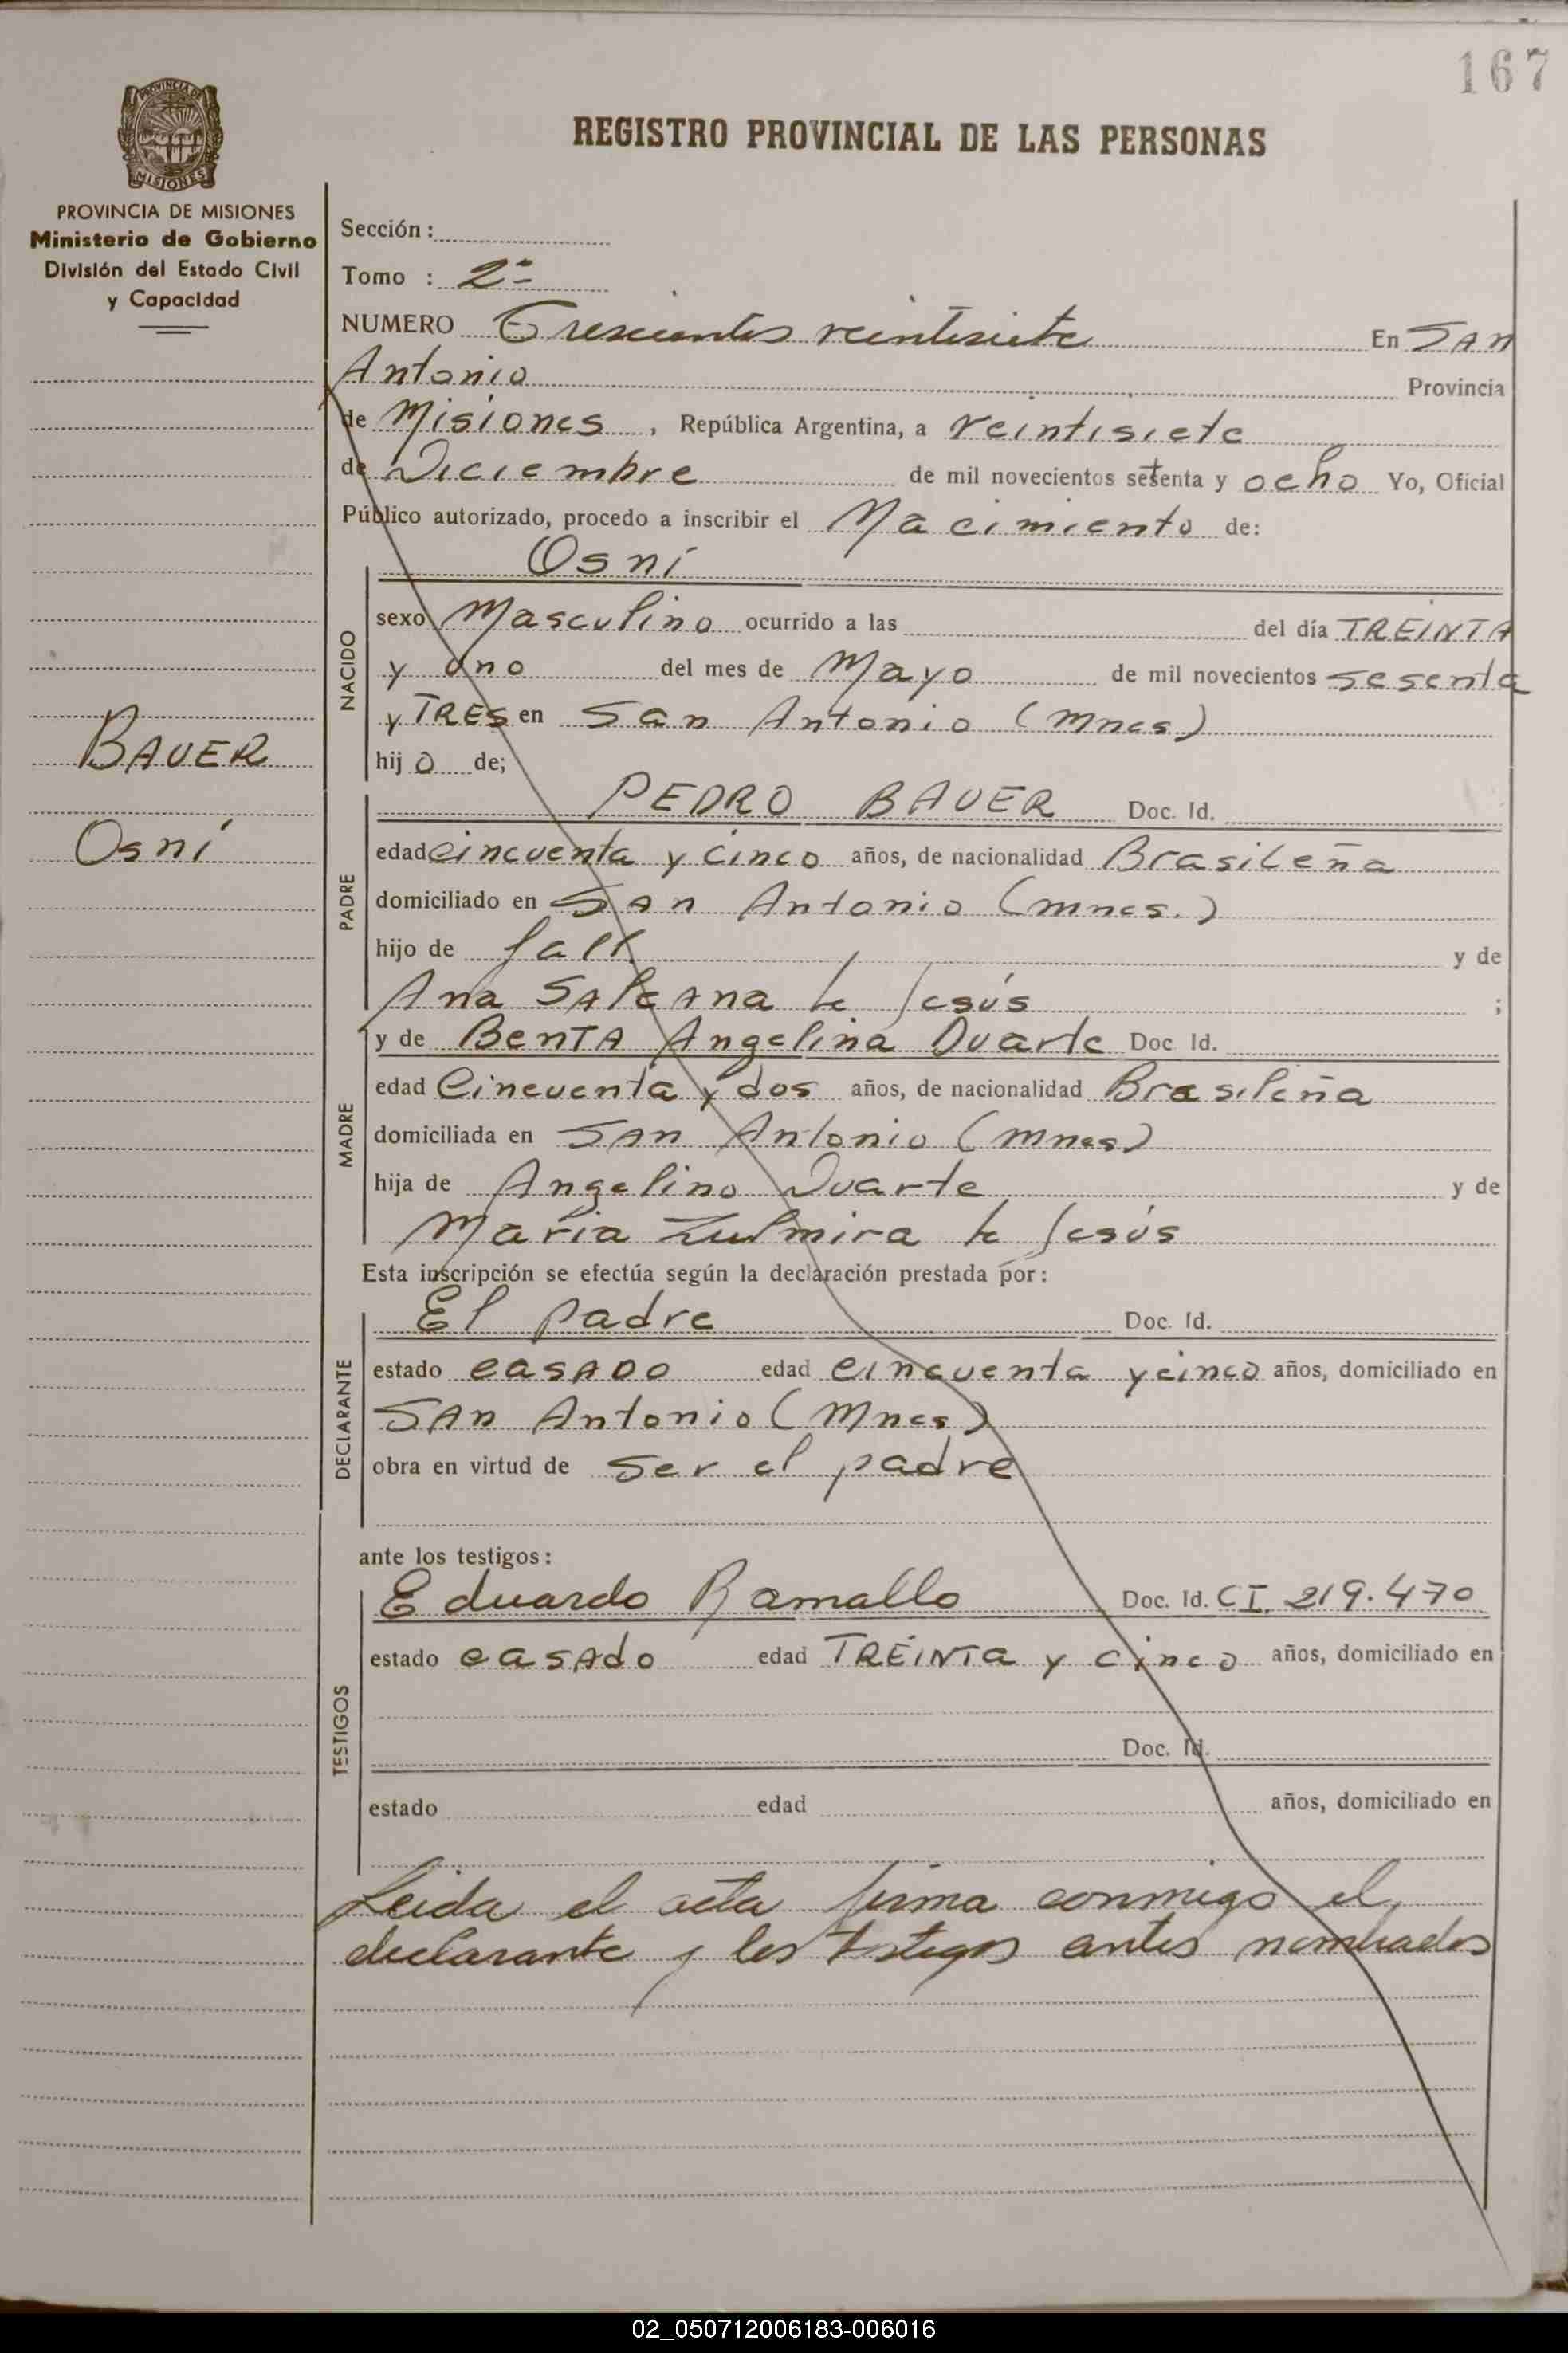 167
REGISTRO PROVINCIAL DE LAS PERSONAS
PROVINCIA DE MISIONES
MISIONES
PROVINCIA DE MISIONES
Ministerio de Gobierno
División del Estado Civil
y Capacidad
BAUER
Osni
Sección :
Tomo : 2º
NUMERO Trescientos veintisiete En SAN
Antonio Provincia
de Misiones , República Argentina, a veintisiete
de Diciembre de mil novecientos setenta y ocho Yo, Oficial
Público autorizado, procedo a inscribir el Nacimiento de:
Osni
NACIDO
sexo Masculino ocurrido a las del día TREINTA
y uno del mes de Mayo de mil novecientos sesenta
y TRES en San Antonio (Mnes)
hij o de;
PADRE
PEDRO BAUER Doc. Id.
edad cincuenta y cinco años, de nacionalidad Brasileña
domiciliado en SAN Antonio (mnes.)
hijo de y de
Ana de Jesús ;
MADRE
y de BENTA Angelina Duarte Doc Id.
edad Cincuenta y dos años, de nacionalidad Brasileña
domiciliada en SAN Antonio (mnes)
hija de Angelino Duarte y de
Maria Zulmira de Jesús
Esta inscripción se efectúa según la declaración prestada por:
DECLARANTE
El padre Doc. Id.
estado casado edad cincuenta y cinco años, domiciliado en
SAN Antonio (Mnes)
obra en virtud de ser el padre
ante los testigos:
TESTIGOS
Eduardo Ramallo Doc. Id. CI. 219.470
estado casado edad TREINTA y cinco años, domiciliado en
Doc. Id.
estado edad años, domiciliado en
Leida el acta firma conmigo el
declarante y los testigos antes nombrados
02_050712006183-006016